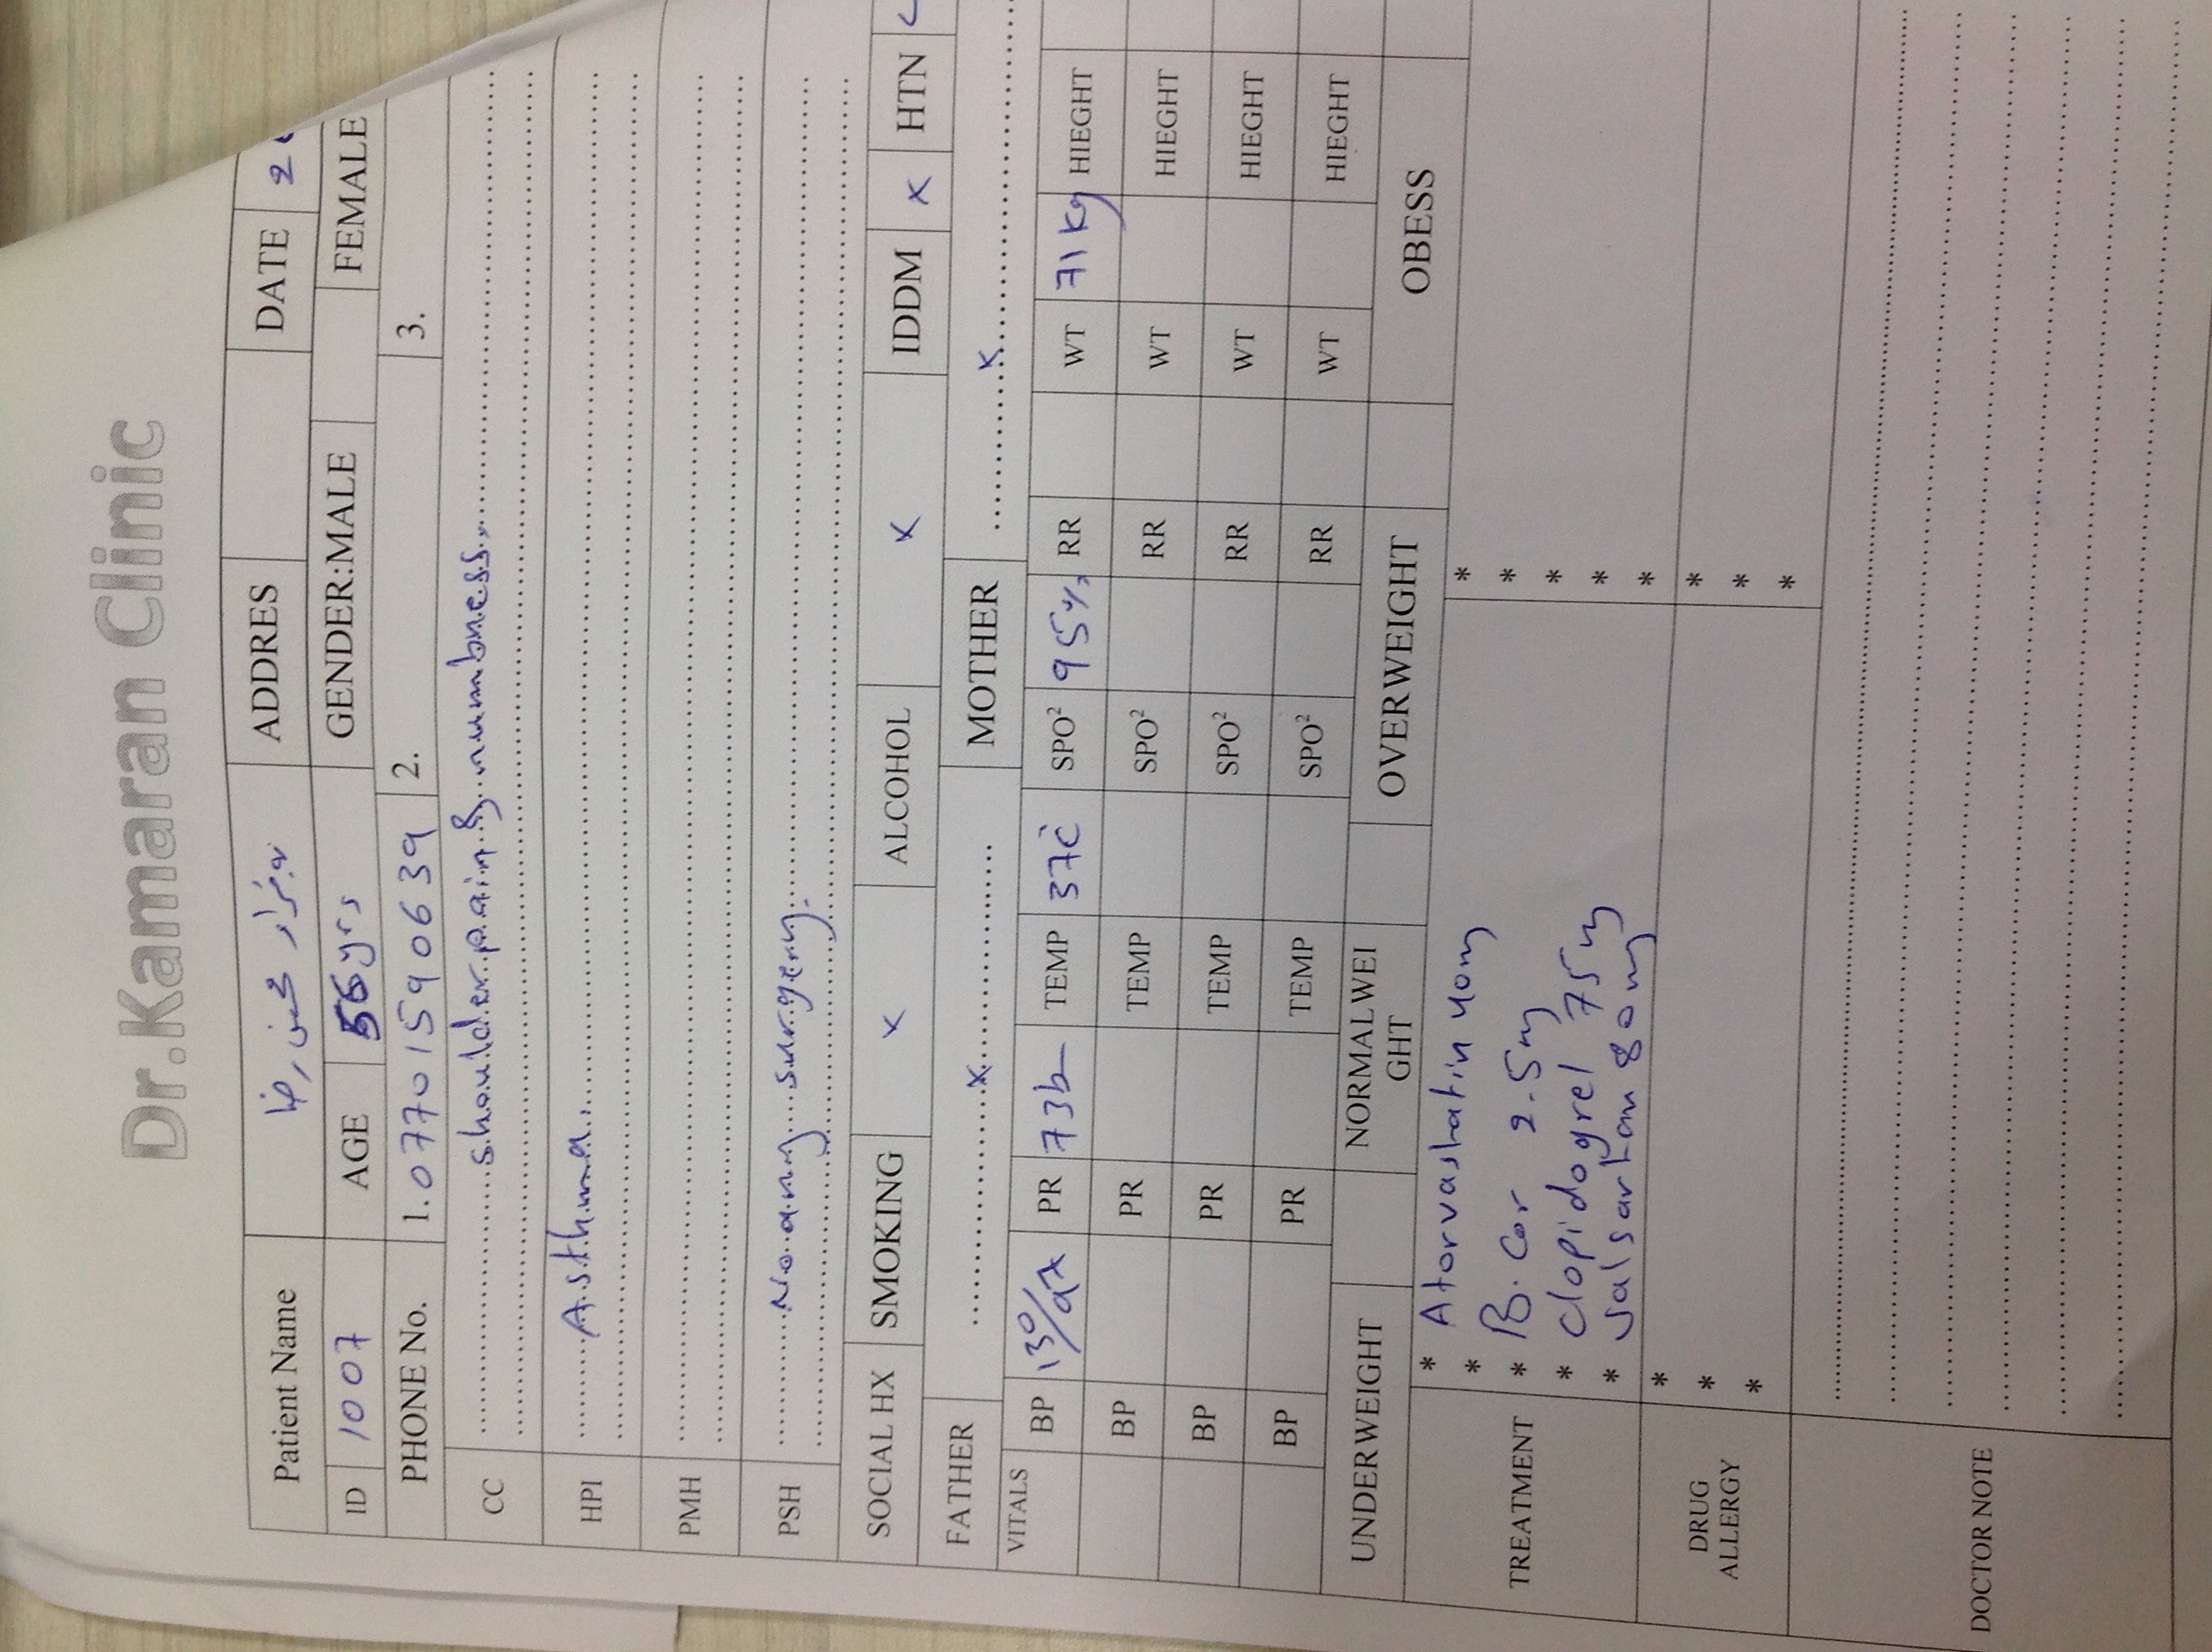 Dr.Kamaran Clinic
Patient Name ADDRES DATE
ID 1007 AGE 56yrs GENDER:MALE FEMALE
PHONE No. 1. 07701590639 2. 3.
CC shoulder pain & numbness
HPI Asthma
PMH
PSH No any surgery.
SOCIAL HX SMOKING x ALCOHOL x IDDM x HTN
FATHER x MOTHER x
VITALS BP PR 73b TEMP 37c SPO² 95% RR WT 71 kg HIEGHT
BP PR TEMP SPO² RR WT HIEGHT
BP PR TEMP SPO² RR WT HIEGHT
BP PR TEMP SPO² RR WT HIEGHT
UNDERWEIGHT NORMAL WEI
GHT OVERWEIGHT OBESS
TREATMENT
* Atorvastatin 40mg *
* B.Cor 2.5mg *
* Clopidogrel 75mg *
* valsartan 80mg *
* *
DRUG
ALLERGY
* *
* *
* *
DOCTOR NOTE